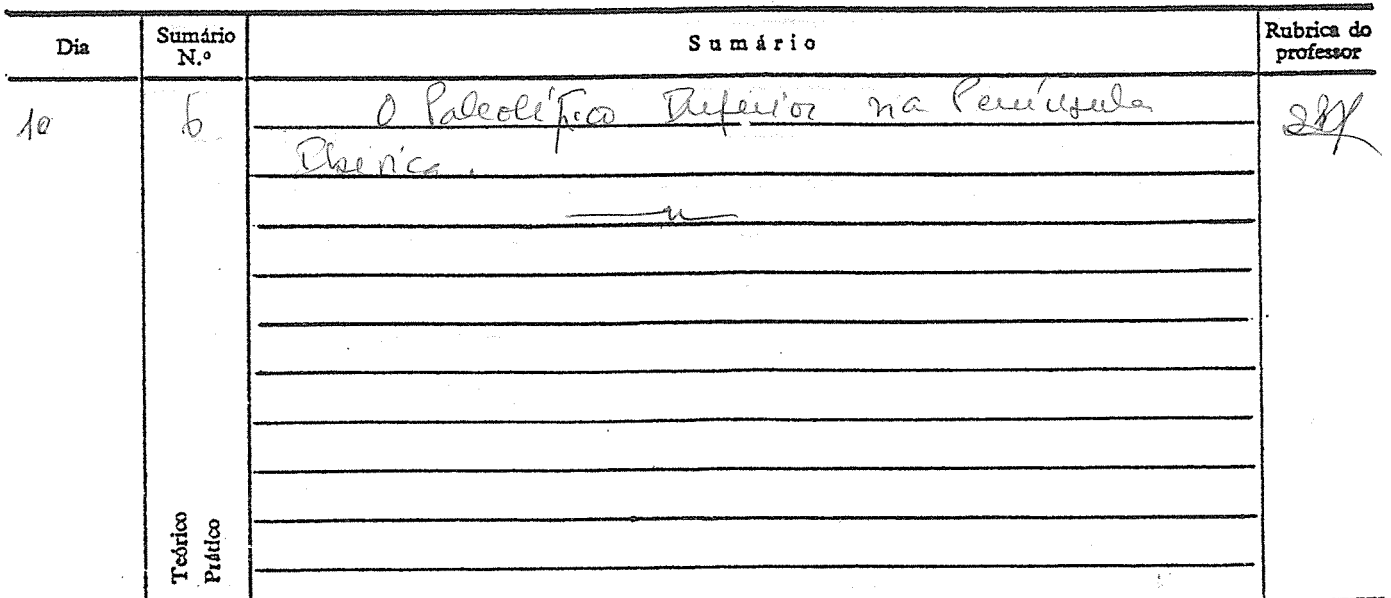 Dia Sumário N.º Sumário Rubrica do professor
10 6 O Paleolítico Inferior na Península
Ibérica.
Teórico
Prático